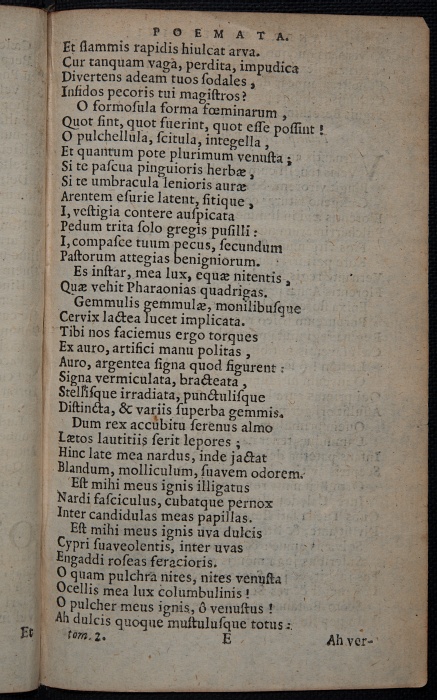 POEMATA.
Et flammis rapidis hiulcat arva.
Cur tanquam vaga, perdita, impudica
Divertens adeam tuos ſodales,
Infidos pecoris tui magiſtros?
O formoſula forma fœminarum,
Quot ſint, quot fuerint, quot eſſe poſſint!
O pulchellula, ſcitula, integella,
Et quantum pote plurimum venuſta;
Si te paſcua pinguioris herbæ,
Si te umbracula lenioris auræ
Arentem eſurie latent, ſitique,
I, veſtigia contere auſpicata
Pedum trita ſolo gregis puſilli:
I, compaſce tuum pecus, ſecundum
Paſtorum attegias benigniorum.
Es inſtar, mea lux, equæ nitentis,
Quæ vehit Pharaonias quadrigas.
Gemmulis gemmulæ, monilibuſque
Cervix lactea lucet implicata.
Tibi nos faciemus ergo torques
Ex auro, artifici manu politas,
Auro, argentea ſigna quod figurent:
Signa vermiculata, bracteata,
Stelliſque irradiata, punctuliſque
Diſtincta, & variis ſuperba gemmis.
Dum rex accubitu ſerenus almo
Lætos lautitiis ſerit lepores;
Hinc late mea nardus, inde jactat
Blandum, molliculum, ſuavem odorem.
Eſt mihi meus ignis illigatus
Nardi faſciculus, cubatque pernox
Inter candidulas meas papillas.
Eſt mihi meus ignis uva dulcis
Cypri ſuaveolentis, inter uvas
Engaddi roſeas feracioris.
O quam pulchra nites, nites venuſta
Ocellis mea lux columbulinis!
O pulcher meus ignis, ô venuſtus!
Ah dulcis quoque muſtuluſque totus:
Et
tom. 2. E Ah ver-